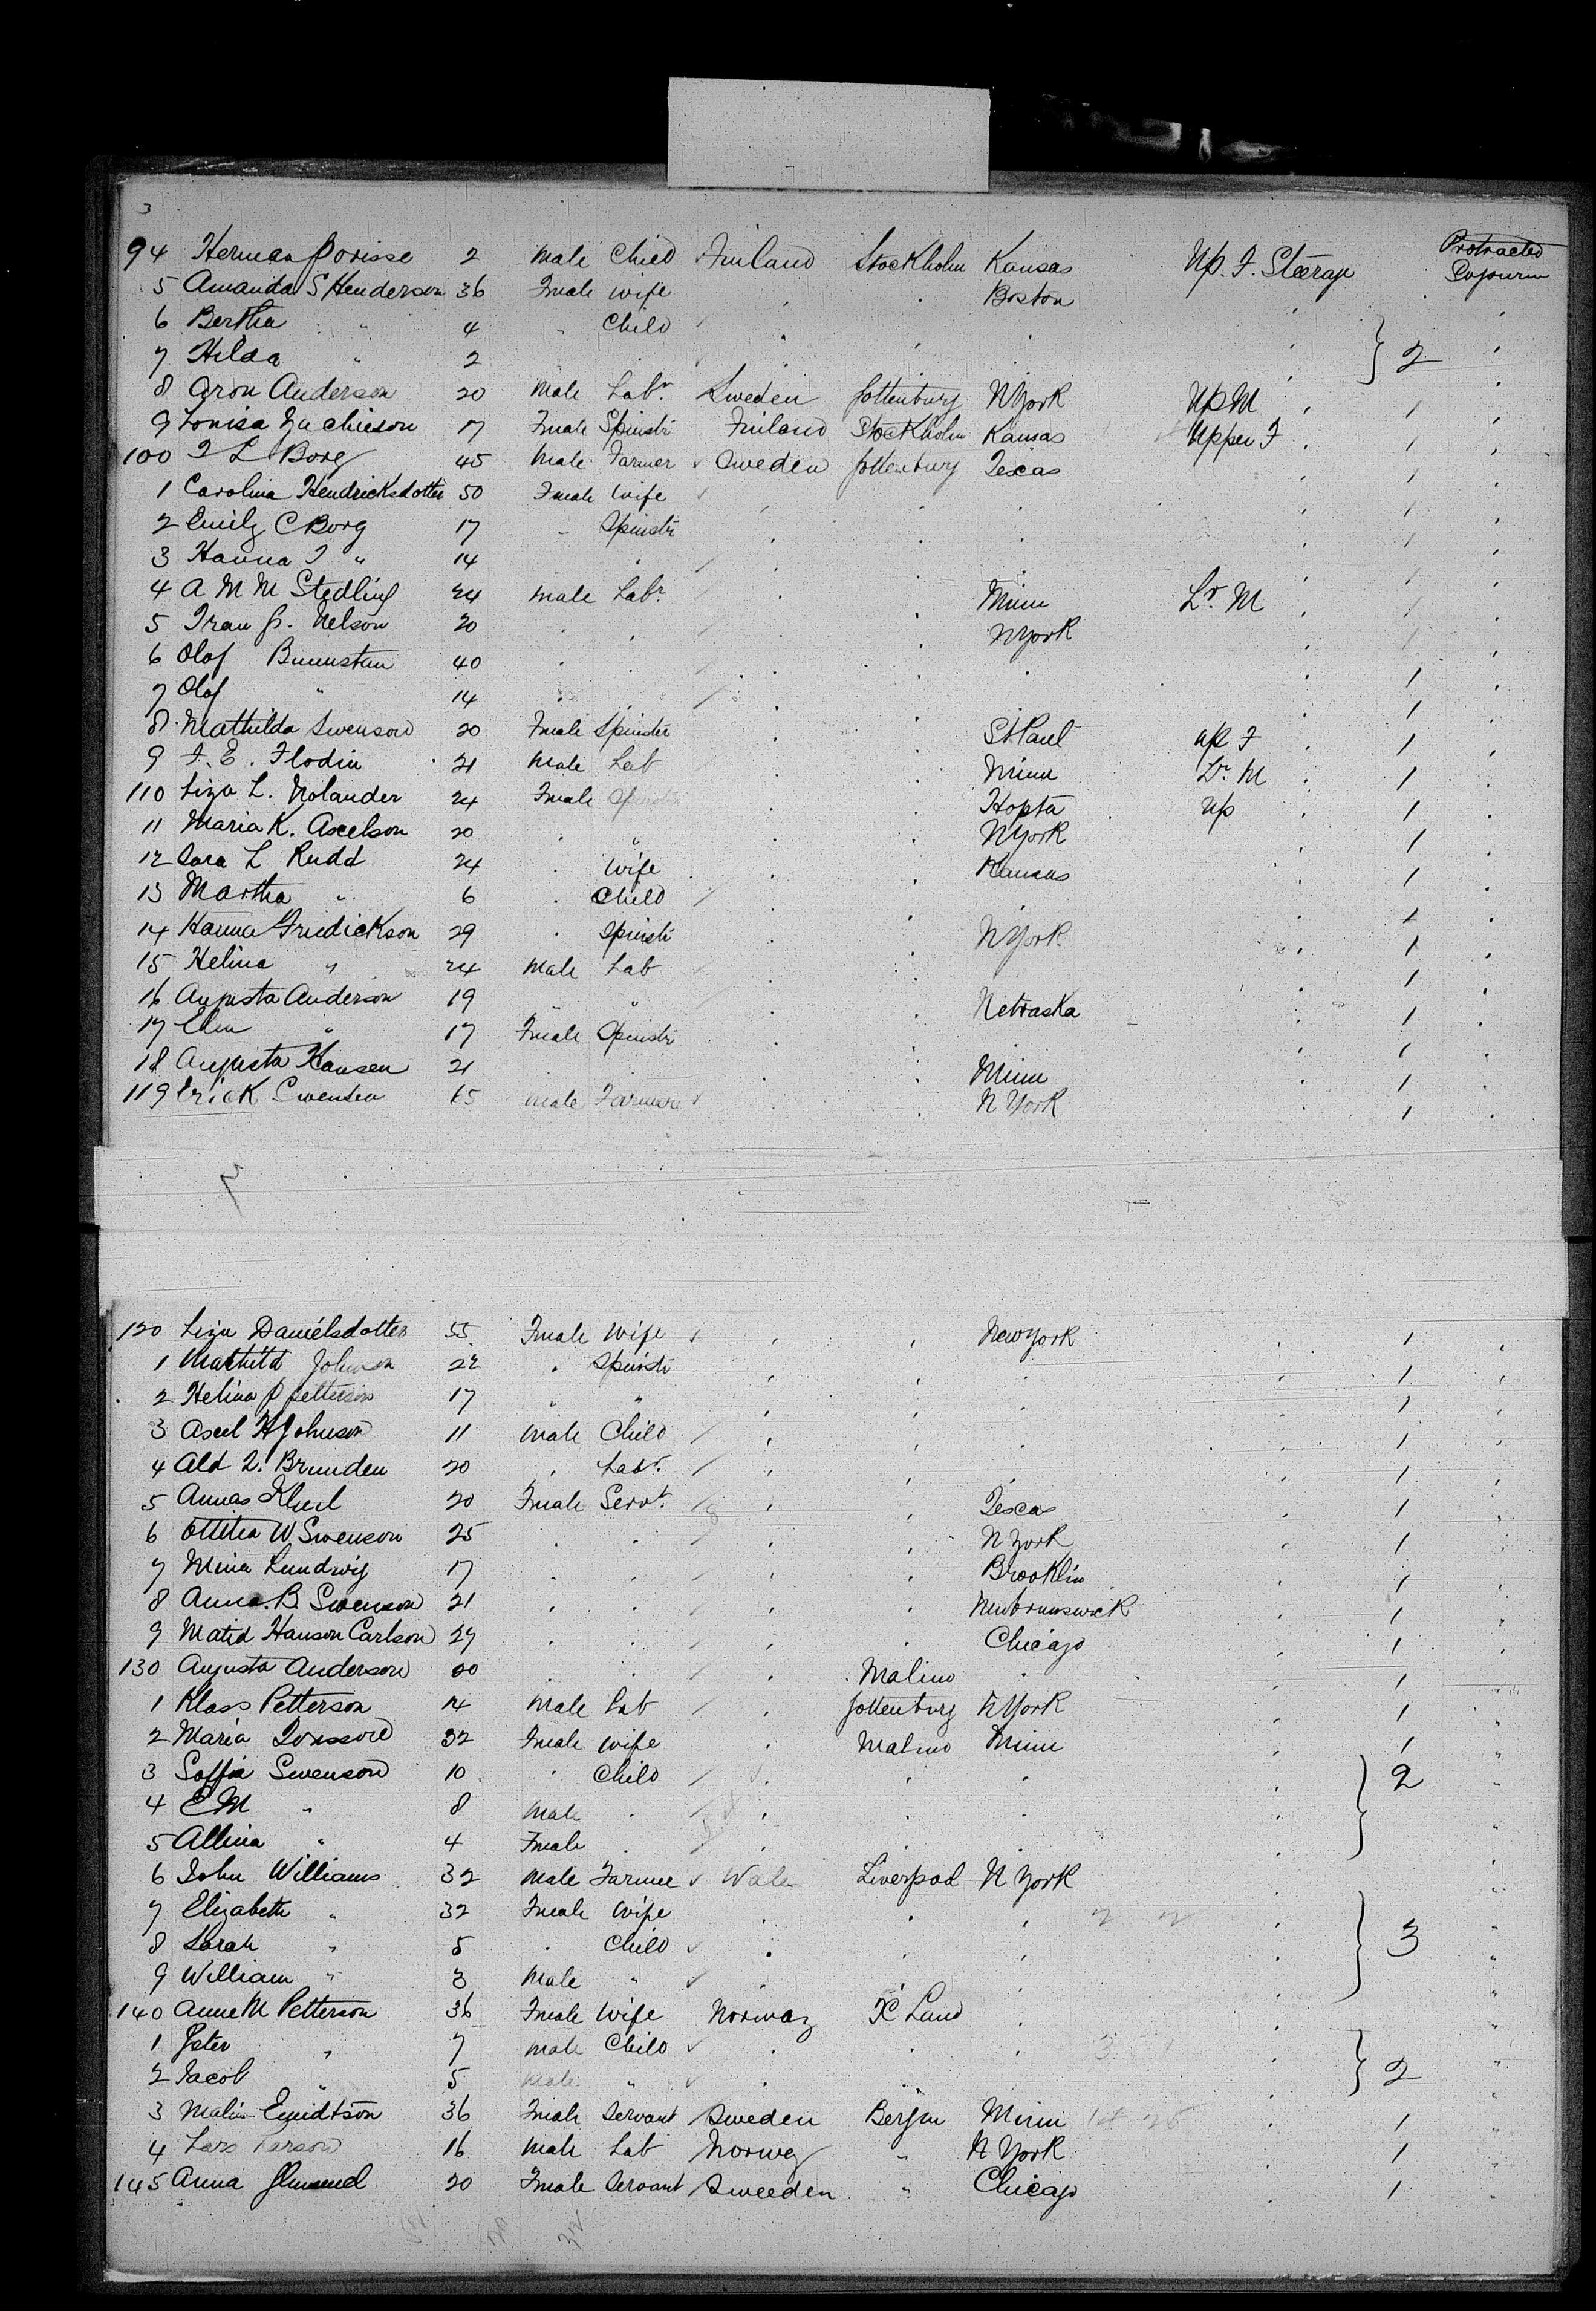 3
94 Herman Jorisse 2 Male Child Finland Stockholm Kansas Up. F. Steerage Protracted Sojourn
5 Amanda S Henderson 36 Fmale Wife " " Boston
6 Bertha " 4 " Child
7 Hilda " 2 } 2
8 Aron Anderson 20 Male Labr. Sweden Gottenburg N York Up M 1
9 Louisa Zachieson 17 Fmale Spinstr Finland Stockholm Kansas Upper F 1
100 I L Borg 45 Male Farmer Sweden Gottenburg Texas 1
1 Carolina Hendricksdotter 50 Fmale Wife 1
2 Emily C Borg 17 " Spinstr 1
3 Hanna I " 14 1
4 A M M Stedling 24 Male Labr. Minn Lr. M 1
5 Fran J. Nelson 20 N York 1
6 Olof Bunnstun 40 1
7 Olof " 14 1
8 Mathilda Swenson 20 Fmale Spinster St Paul Up F 1
9 F. E. Flodin 21 Male Lab Minn Lr. M 1
110 Liza L. Nolander 24 Fmale Spinster Hopta Up 1
11 Maria K. Axelson 20 " N York 1
12 Sara L Rudd 24 Wife Kansas 1
13 Martha " 6 Child 1
14 Hanna Fridickson 29 Spinstr N York 1
15 Helina " 24 Male Lab 1
16 Augusta Anderson 19 " " Netraska 1
17 Elin " 17 Fmale Spinstr 1
18 Augusta Hansen 21 Minn 1
119 Erick Swensen 65 Male Farmer N York 1
120 Liza Danielsdotter 55 Fmale Wife New York 1
1 Mathild Johnson 22 " Spinstr 1
2 Helina P Petterson 17 " " 1
3 Axel H Johnson 11 Male Child 1
4 Ald Q. Brunden 20 " Labr. 1
5 Annas 20 Fmale Servt. Texas 1
6 Ottilia W Swenson 25 N York 1
7 Mina Lundwig 17 Brooklin 1
8 Anna. B. Swenson 21 Newbrunswick 1
9 Matid Hanson Carlson 27 Chicago 1
130 Augusta Anderson 20 Malmo 1
1 Klass Petterson 14 Male Lab Gottenburg N York 1
2 Maria 32 Fmale Wife Malmo Minn 1
3 Soffia Swenson 10 " Child } 2
4 C M " 8 Male
5 Allina " 4 Fmale
6 John Williams 32 Male Farmer Wales Liverpool N York
7 Elizabeth " 32 Fmale Wife } 3
8 Sarah " 5 " Child
9 William " 3 Male "
140 Anne M Petterson 36 Fmale Wife Norway X Land
1 Peter " 7 Male Child } 2
2 Jacob " 5 Male "
3 Malin Emidtson 36 Fmale Servant Sweden Bergen Minn 1
4 Lars Larson 16 Male Lab Norweg " N York 1
145 Anna 20 Fmale Servant Sweeden " Chicago 1